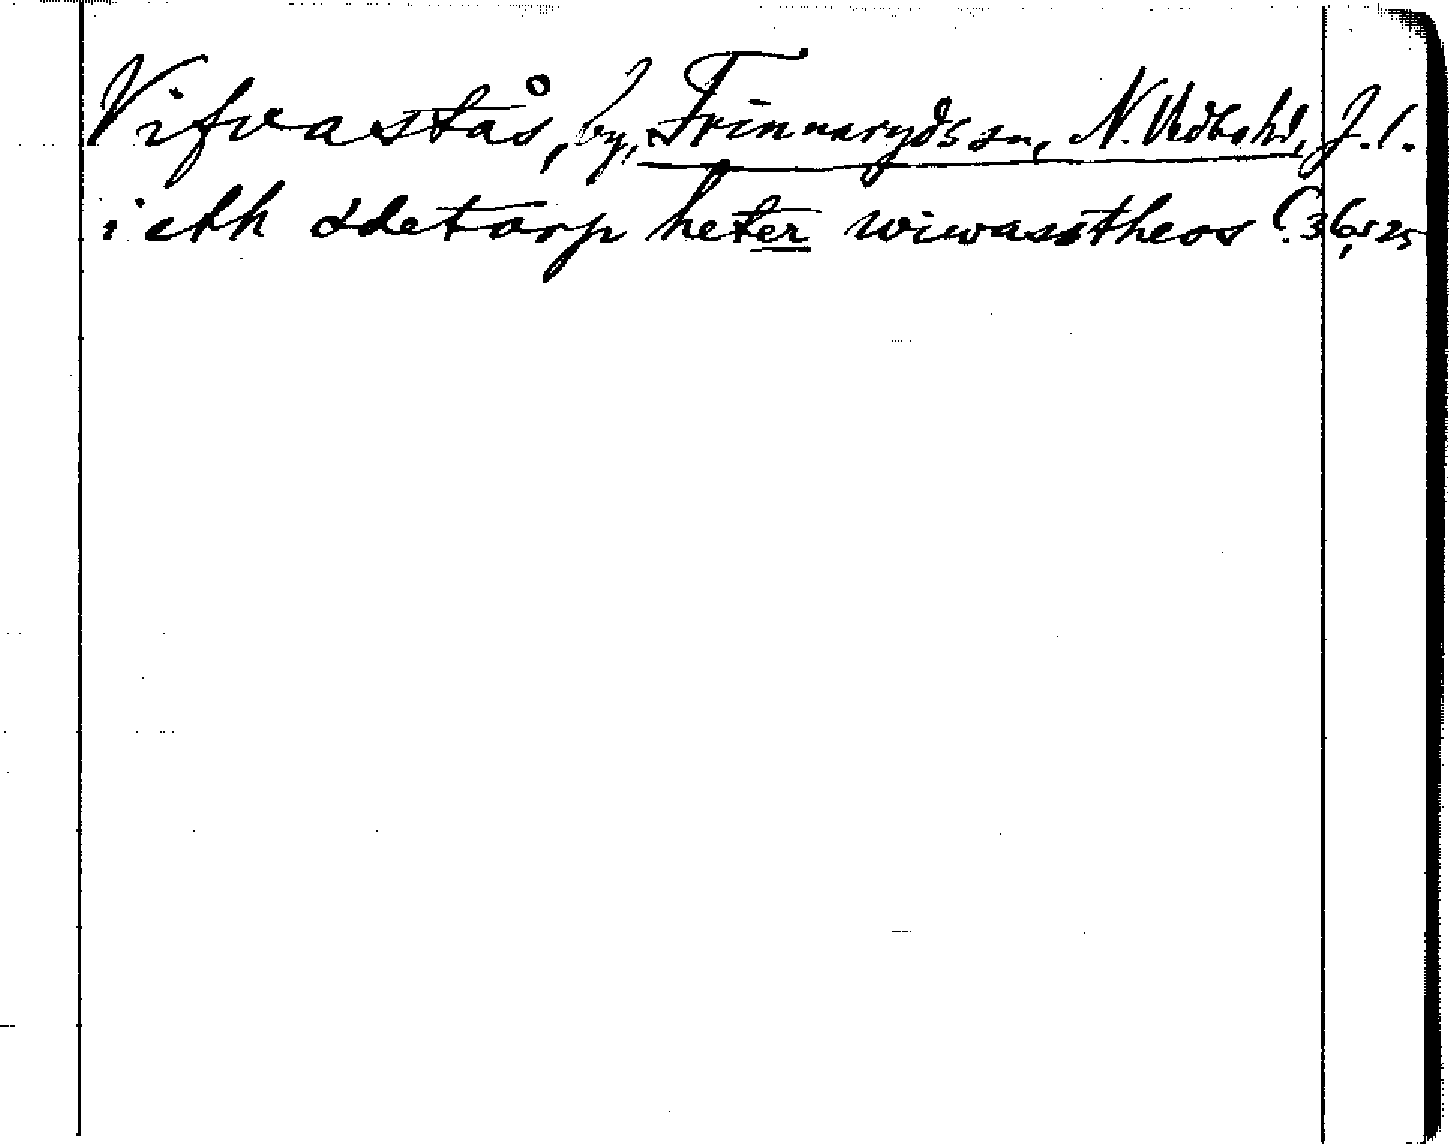 Vifvastås, by, Frinnaryds sn, N. Vedbo hd, J. l.
i eth ødetorp heter wiwasstheos